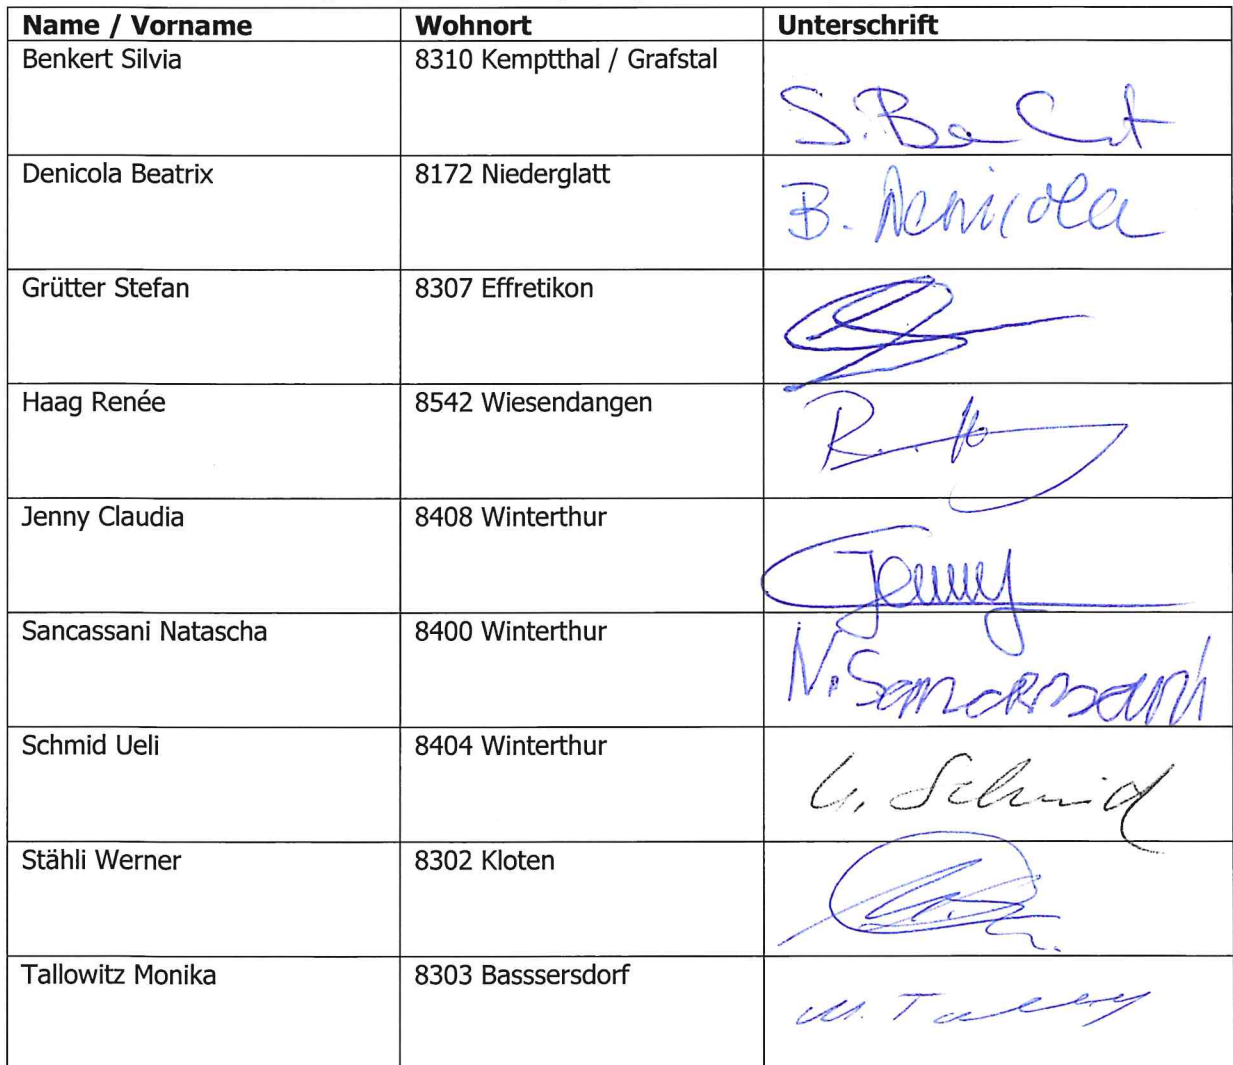 Name / Vorname Wohnort Unterschrift
Benkert Silvia 8310 Kemptthal / Grafstal
S. Be
Denicola Beatrix 8172 Niederglatt
B. Denicola
Grütter Stefan 8307 Effretikon
Haag Renée 8542 Wiesendangen
R.
Jenny Claudia 8408 Winterthur
Jenny
Sancassani Natascha 8400 Winterthur
N.
Schmid Ueli 8404 Winterthur
U. Schmid
Stähli Werner 8302 Kloten
Tallowitz Monika 8303 Basssersdorf
M.